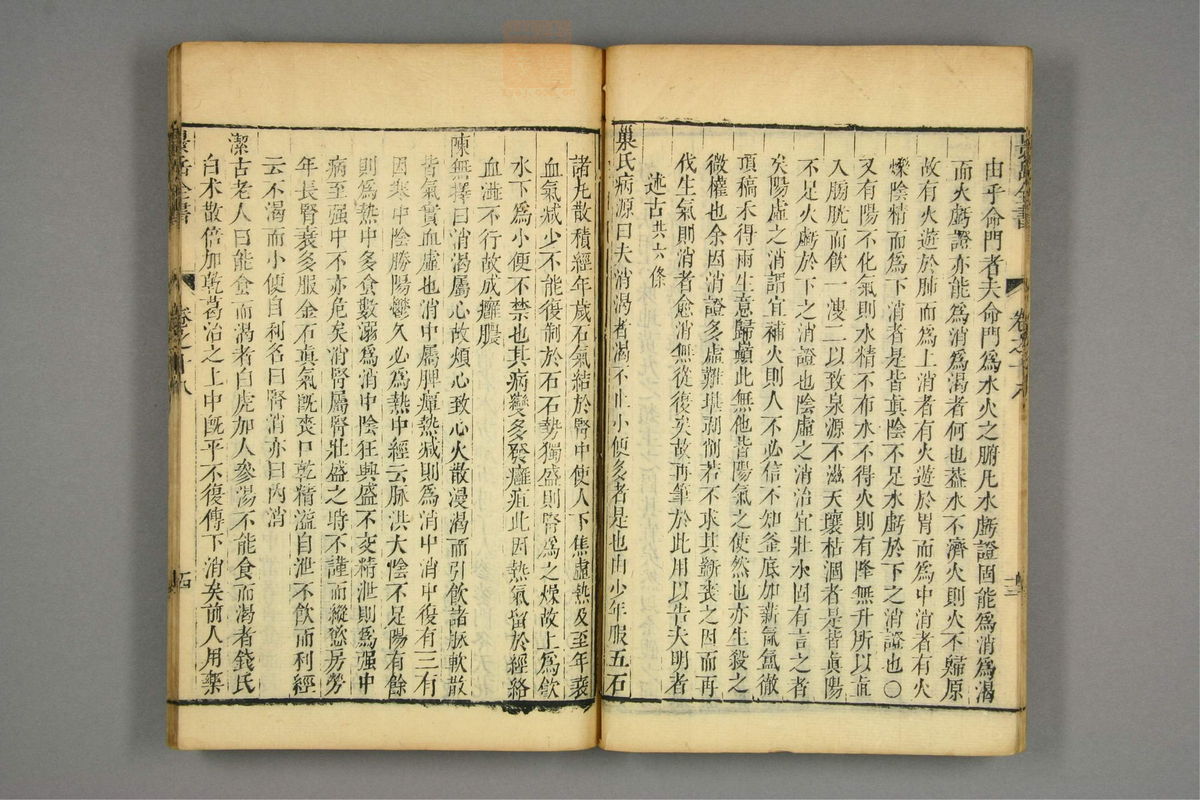 景岳全書
卷之十八
三
由乎命門者夫命門爲水火之腑凡水虧證固能爲消爲渴
而火虧證亦能爲消爲渴者何也蓋水不濟火則火不歸原
故有火遊於肺而爲上消者有火遊於胃而爲中消者有火
爍陰精而爲下消者是皆眞陰不足水虧於下之消證也〇
又有陽不化氣則水精不布水不得火則有降無升所以直
入膀胱而飲一溲二以致泉源不滋天壤枯涸者是皆眞陽
不足火虧於下之消證也陰虛之消治宜壯水固有言之者
矣陽虛之消謂宜補火則人必不信不知釜底加薪氤氳徹
頂槁禾得雨生意歸巔此無他皆陽氣之使然也亦生殺之
微權也余因消證多虛難堪剥削若不求其斵喪之因而再
伐生氣則消者愈消無從復矣故再筆於此用以告夫明者
述古共六條
巢氏病源曰夫消渴者渴不止小便多者是也由少年服五石
諸丸散積經年歲石氣結於腎中使人下焦虛熱及至年衰
血氣減少不能復制於石石勢獨盛則腎爲之燥故上爲飲
水下爲小便不禁也其病變多發癰疽此因熱氣留於經絡
血澁不行故成癰膿
陳無擇曰消渴屬心故煩心致心火散漫渴而引飲諸脈軟散
皆氣實血虛也消中屬脾癉熱減則爲消中消中復有三有
因寒中陰勝陽鬱久必爲熱中經云脉洪大陰不足陽有餘
則爲熱中多食數溺爲消中陰狂興盛不交精泄則爲强中
病至强中不亦危矣消腎屬腎壯盛之時不謹而縱慾房勞
年長腎衰多服金石眞氣既喪口乾精溢自泄不飲而利經
云不渴而小便自利名曰腎消亦曰內消
潔古老人曰能食而渴者白虎加人參湯不能食而渴者錢氏
白术散倍加乾葛治之上中既平不復傳下消矣前人用藥
景岳全書
卷之十八
四